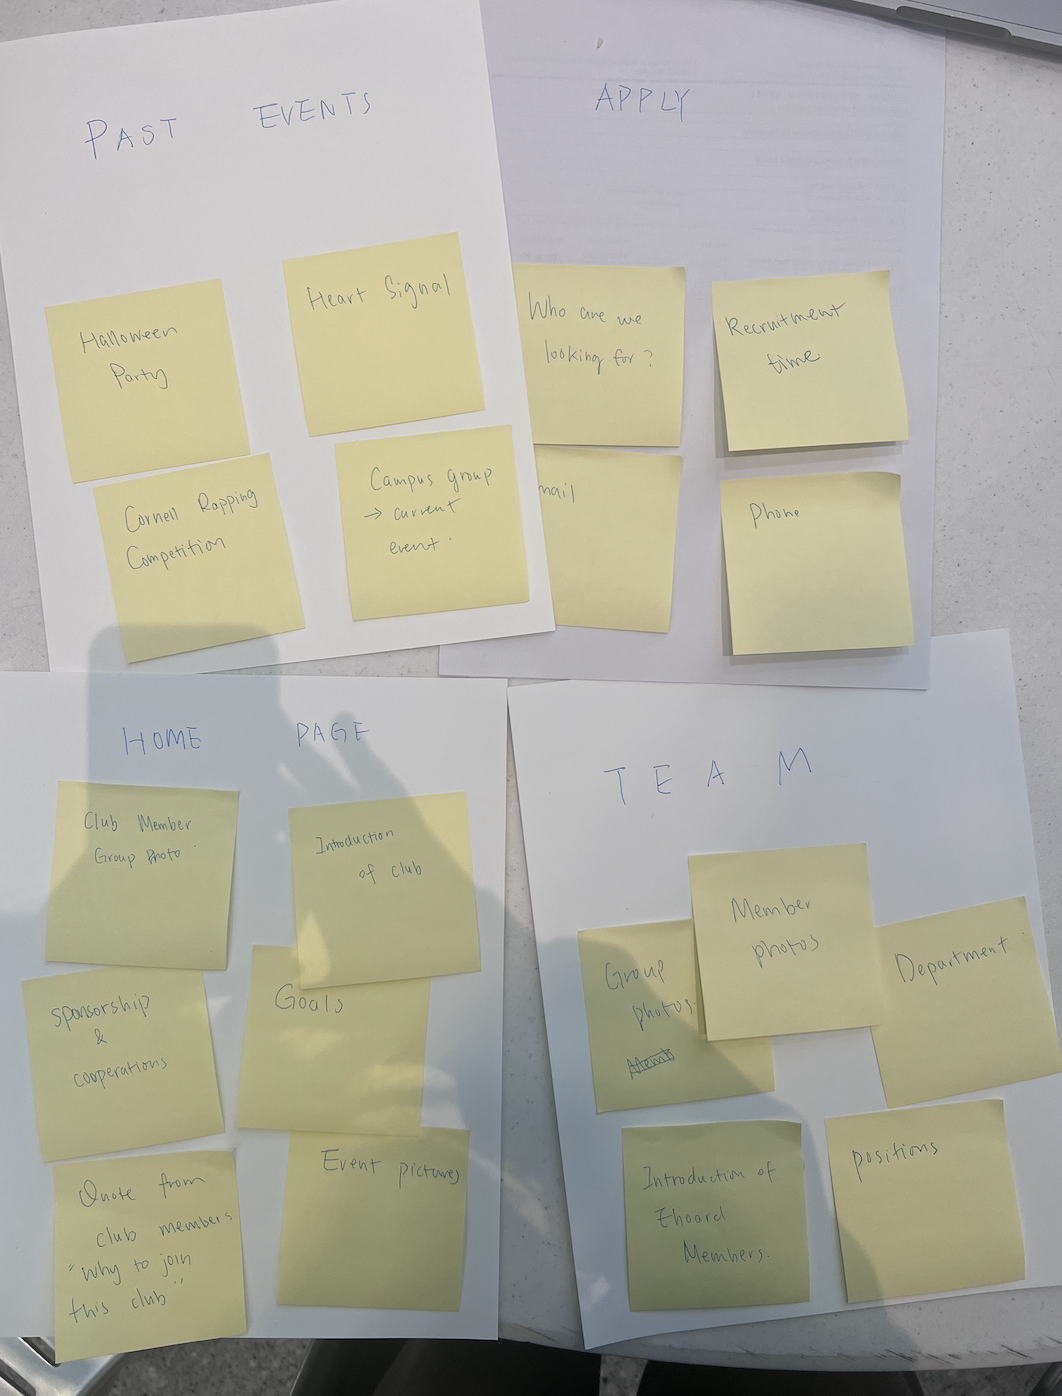 PAST EVENTS
Halloween
Party
Heart Signal
Cornell Rapping
Competition
Campus group
→ current
event.
APPLY
Who are we
looking for?
Recruitment
time
mail
Phone
HOME PAGE
Club Member
Group Photo
Introduction
of club
Sponsorship
&
cooperations
Goals
Quote from
club members
"Why to join
this club"
Event pictures
TEAM
Group
photos
Member
photos
Department
Introduction of
Eboard
Members.
positions